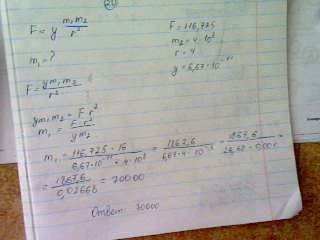 20
F = γ m₁m₂ / r²
F = 116,725
m₂ = 4·10⁸
r = 4
γ = 6,67·10⁻¹¹
m₁ = ?
F = γm₁m₂ / r²
γm₁m₂ = F·r²
m₁ = F·r² / γm₂
m₁ = 116,725·16 / 6,67·10⁻¹¹·4·10⁸ = 1867,6 / 6,67·4·10⁻³ =
= 1867,6 / 0,02668 = 70000
Ответ 70000